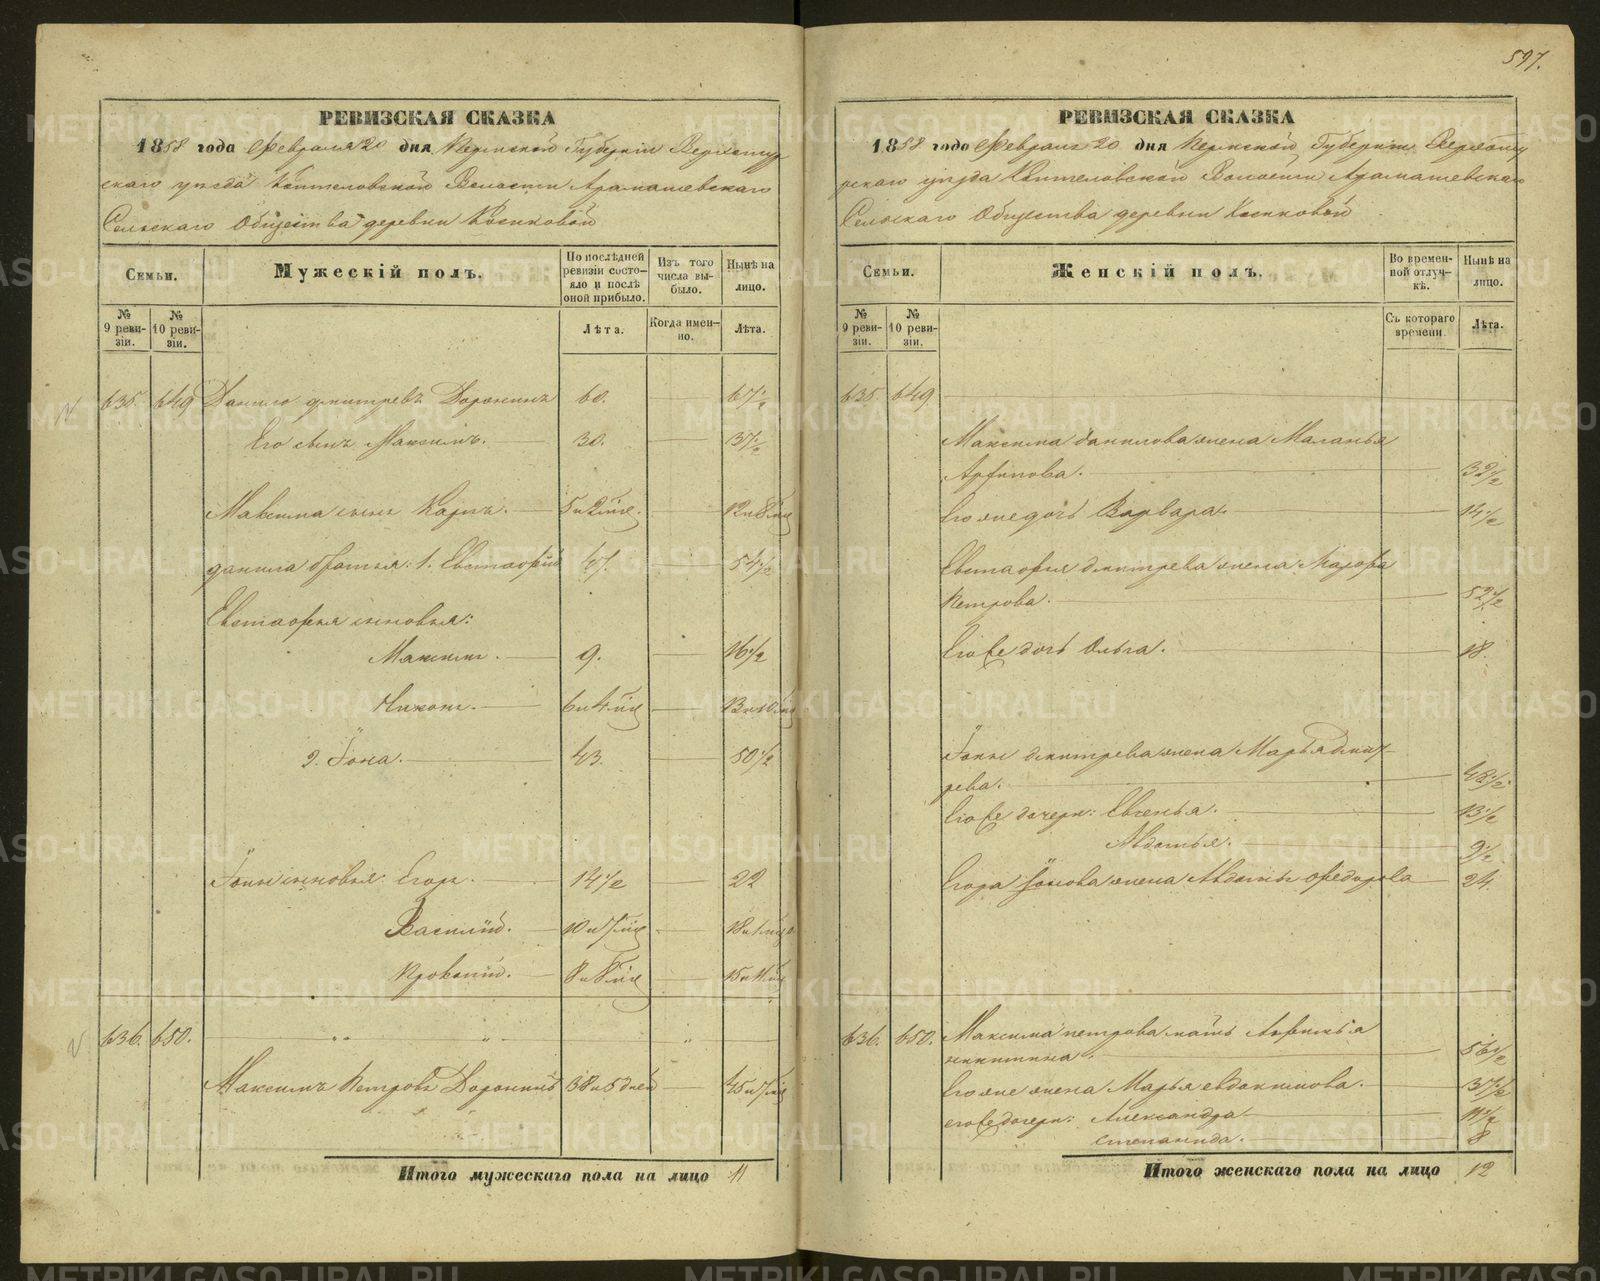 597.
РЕВИЗСКАЯ СКАЗКА
1858 года Февраля 20 дня Пермской Губернiи Верхотур
скаго уезда Коптеловской Волости Арамашевскаго
Сельскаго Общества деревни Косиковой
Семьи.
Мужескiй полъ.
По послѣдней ревизiи состояло и послѣ оной прибыло.
Изъ того числа выбыло.
Нынѣ на лицо.
№ 9 ревизiи.
№ 10 ревизiи.
Лѣта.
Когда именно.
Лѣта.
635. 649 Данило Дмитревъ Доронинъ 60. 67 1/2
Его сынъ Максимъ. 30. 37 1/2
Максима сынъ Карпъ. 5 и 2 мѣс. 12 и 8 мѣс
Данила братья: 1. Евстафiй 47. 54 1/2
Евстафья сыновья:
Максимъ. 9. 16 1/2
Никонъ. 6 и 4 мѣс 13 и 10 мѣс
2. Iона. 43. 50 1/2
Iоны сыновья: Егоръ. 14 1/2 22
Василiй. 10 и 7 мѣс 18 и 1 мѣс
Прокопiй. 8 и 8 мѣс 15 и 11 мѣс
636. 650.
Максимъ Петровъ Доронинъ 38 и 5 дней 45 и 7 мѣс
Итого мужескаго пола на лицо 11
РЕВИЗСКАЯ СКАЗКА
1858 года Февраля 20 дня Пермской Губернiи Верхоту
рскаго уезда Коптеловской Волости Арамашевскаго
Сельскаго Общества деревни Косиковой
Семьи.
Женскiй полъ.
Во временной отлучкѣ.
Нынѣ на лицо.
№ 9 ревизiи.
№ 10 ревизiи.
Съ котораго времени.
Лѣта.
635. 649.
Максима Данилова жена Маланья
Архипова. 32 1/2
Его же дочь Варвара. 14 1/2
Евстафья Дмитрева жена
Петрова. 52 1/2
Его же дочь Ольга. 18.
Iоны Дмитрева жена Марья Дмит-
рева. 1/2
Его же дочери: Евгенья. 13 1/2
Авдотья. 9 1/2
Егора Iонова жена Авдотья Федорова 24.
636. 650. Максима Петрова мать
никитина. 56 1/2
Его же жена Марья Евдокимова. 37 1/2
его же дочери: Александра 11 1/2
Степанида. 8
Итого женскаго пола на лицо 12
METRIKI.GASO-URAL.RU